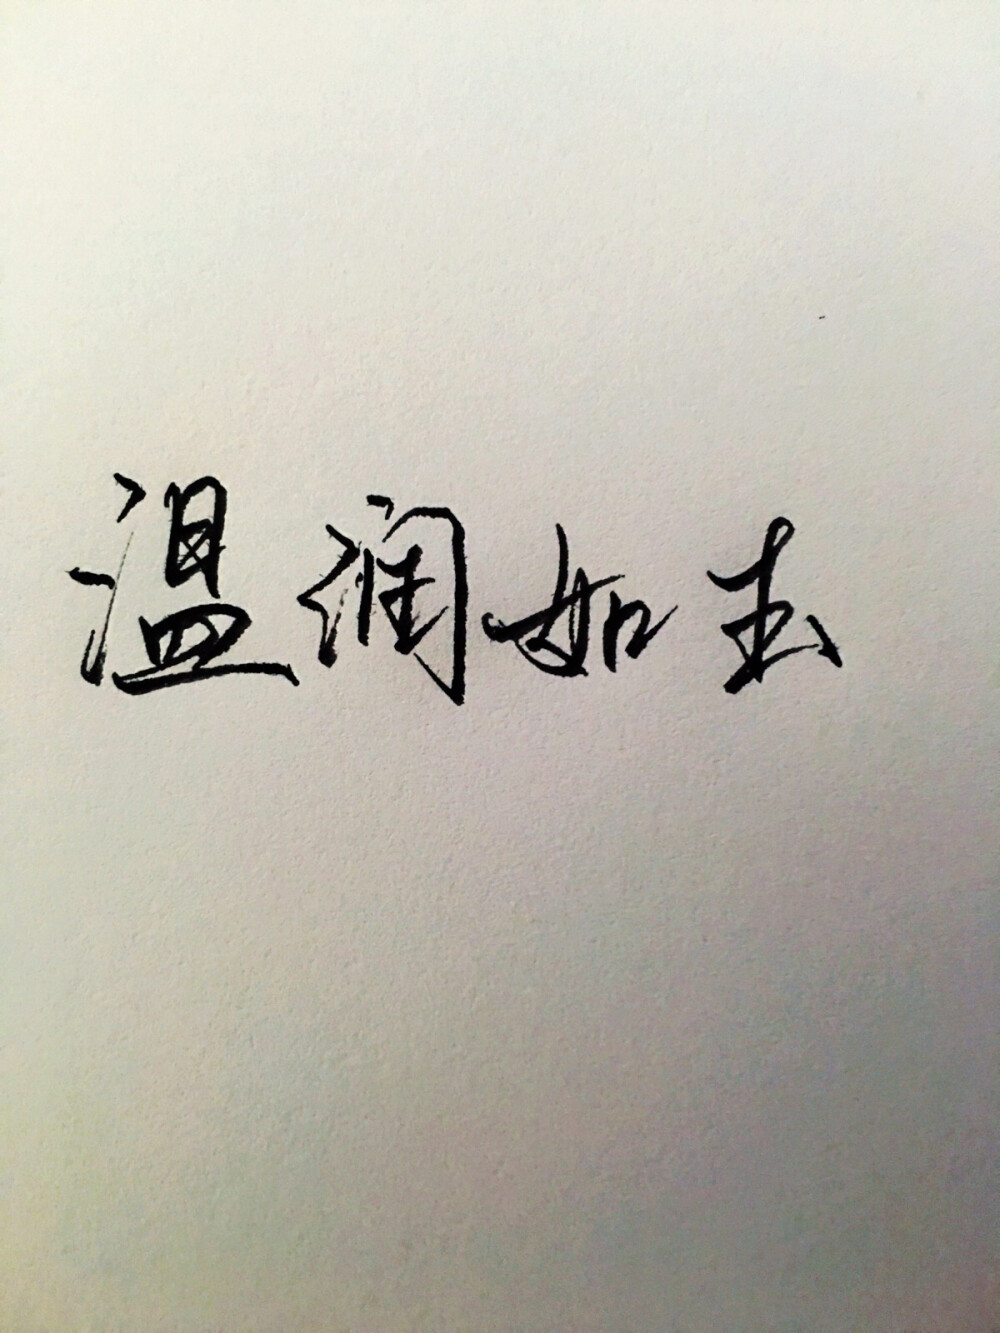 温润如玉